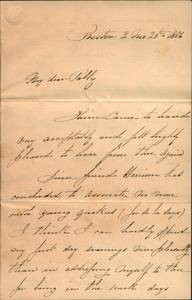 Preston 2 mo 26th 1886
My dear
Thine Came to hand
very acceptably and felt highly
pleased to hear from thee again
Since friend Harrison has
concluded to associate no more
with young Quakers (so he says)
I think I can hardly spend
my first day evenings more pleasantly
than in addressing myself to thee
for being in the week days